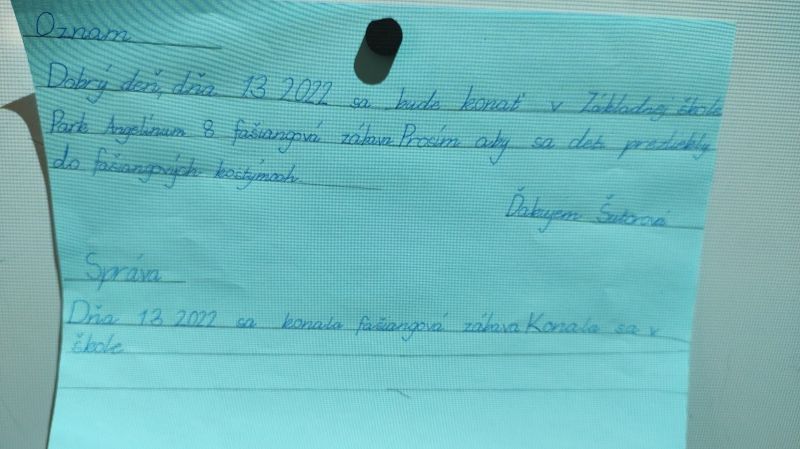 Oznam
Dobrý deň, dňa 13 2022 sa bude konať v Základnej škole
Park Angelinum 8 fašiangová zábava Prosím aby sa deti prezliekly
do fašiangových kostýmoch
Ďakujem Šutorová
Správa
Dňa 13 2022 sa konala fašiangová zábava Konala sa v
škole